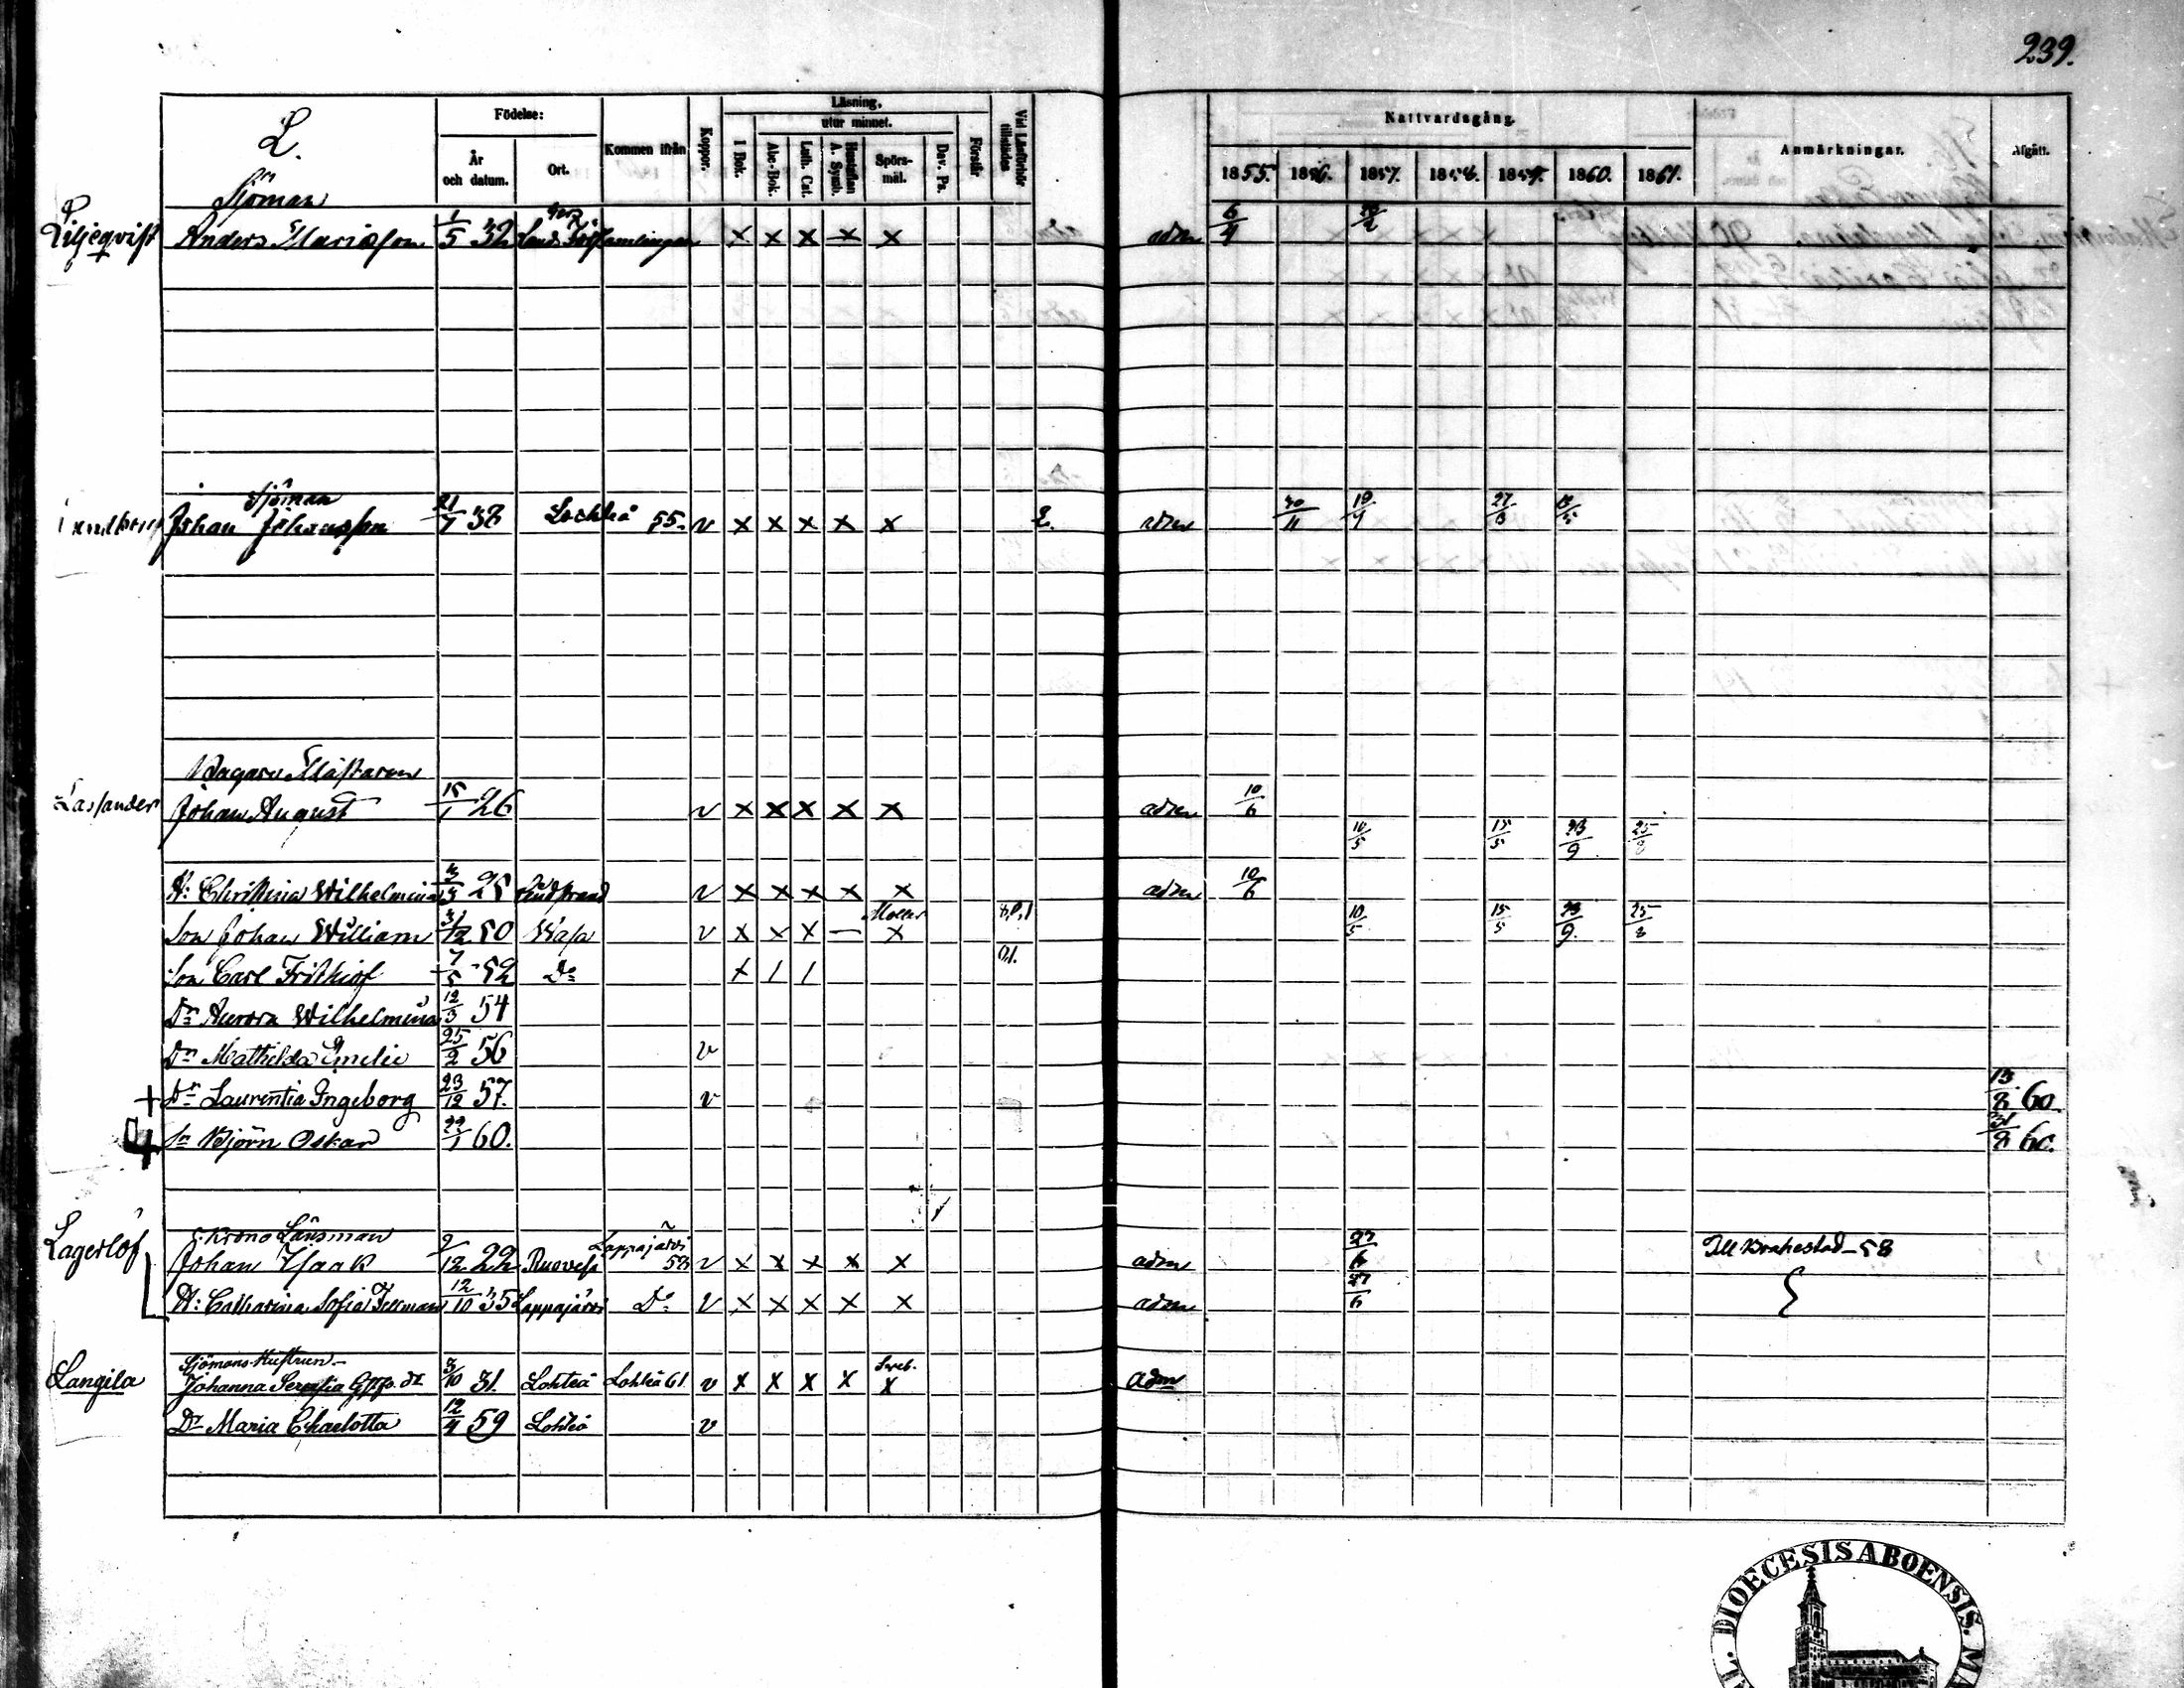 239.
L.
Födelse:
År och datum.
Ort.
Kommen ifrån
Koppor.
Läsning,
utur minnet.
I Bok.
Abc-Bok.
Luth. Cat.
Hustaflan A. Symb.
Spörs-mål.
Dav. Ps.
Förstår
Vid Läsförhör tillstädes
Nattvardsgång.
1855. 1856. 1857. 1858. 1859. 1860. 1861.
Anmärkningar.
Afgått.
Sjöman
Liljeqvist Anders Mariæson 1/5 32 x x x x x adm 6/4
Sjöman
Johan Johansson 21/7 38 Lochteå 55. v x x x x x adm 30/11 19/7
Bagare Mästaren
Johan August 15/1 26 v x x x x x adm 10/6
10/5 15/5 23/9 25/8
H: Christina Wilhelmina 3/5 25 v x x x x x adm 10/6
Son Johan William 3/12 50 Wasa v x x x — x 10/5 15/5 23/9 25/8
Son Carl Frithiof 7/5 52 Do x / /
Dr Aurora Wilhelmina 12/3 54
Dr Mathilda Emelie 25/2 56 v
+ Dr Laurentia Ingeborg 23/12 57. v 13/8 60.
Sn Björn Oskar 22/1 60. 31/8 60.
Krono Länsman
Lagerlöf Johan Isaak 9/12 22 Ruovesi Lappajärvi 58 v x x x x x adm 27/6 Till Brahestad - 58
H: Catharina Sofia Fellman 12/10 35 Lappajärvi Do v x x x x x adm 27/6
Sjömans Hustrun
Langila Johanna Serafia 3/10 31. Lohteå Lohteå 61. v x x x x x adm
Dr Maria Charlotta 12/4 59 Lohteå v
DIOECESIS ABOENSIS.